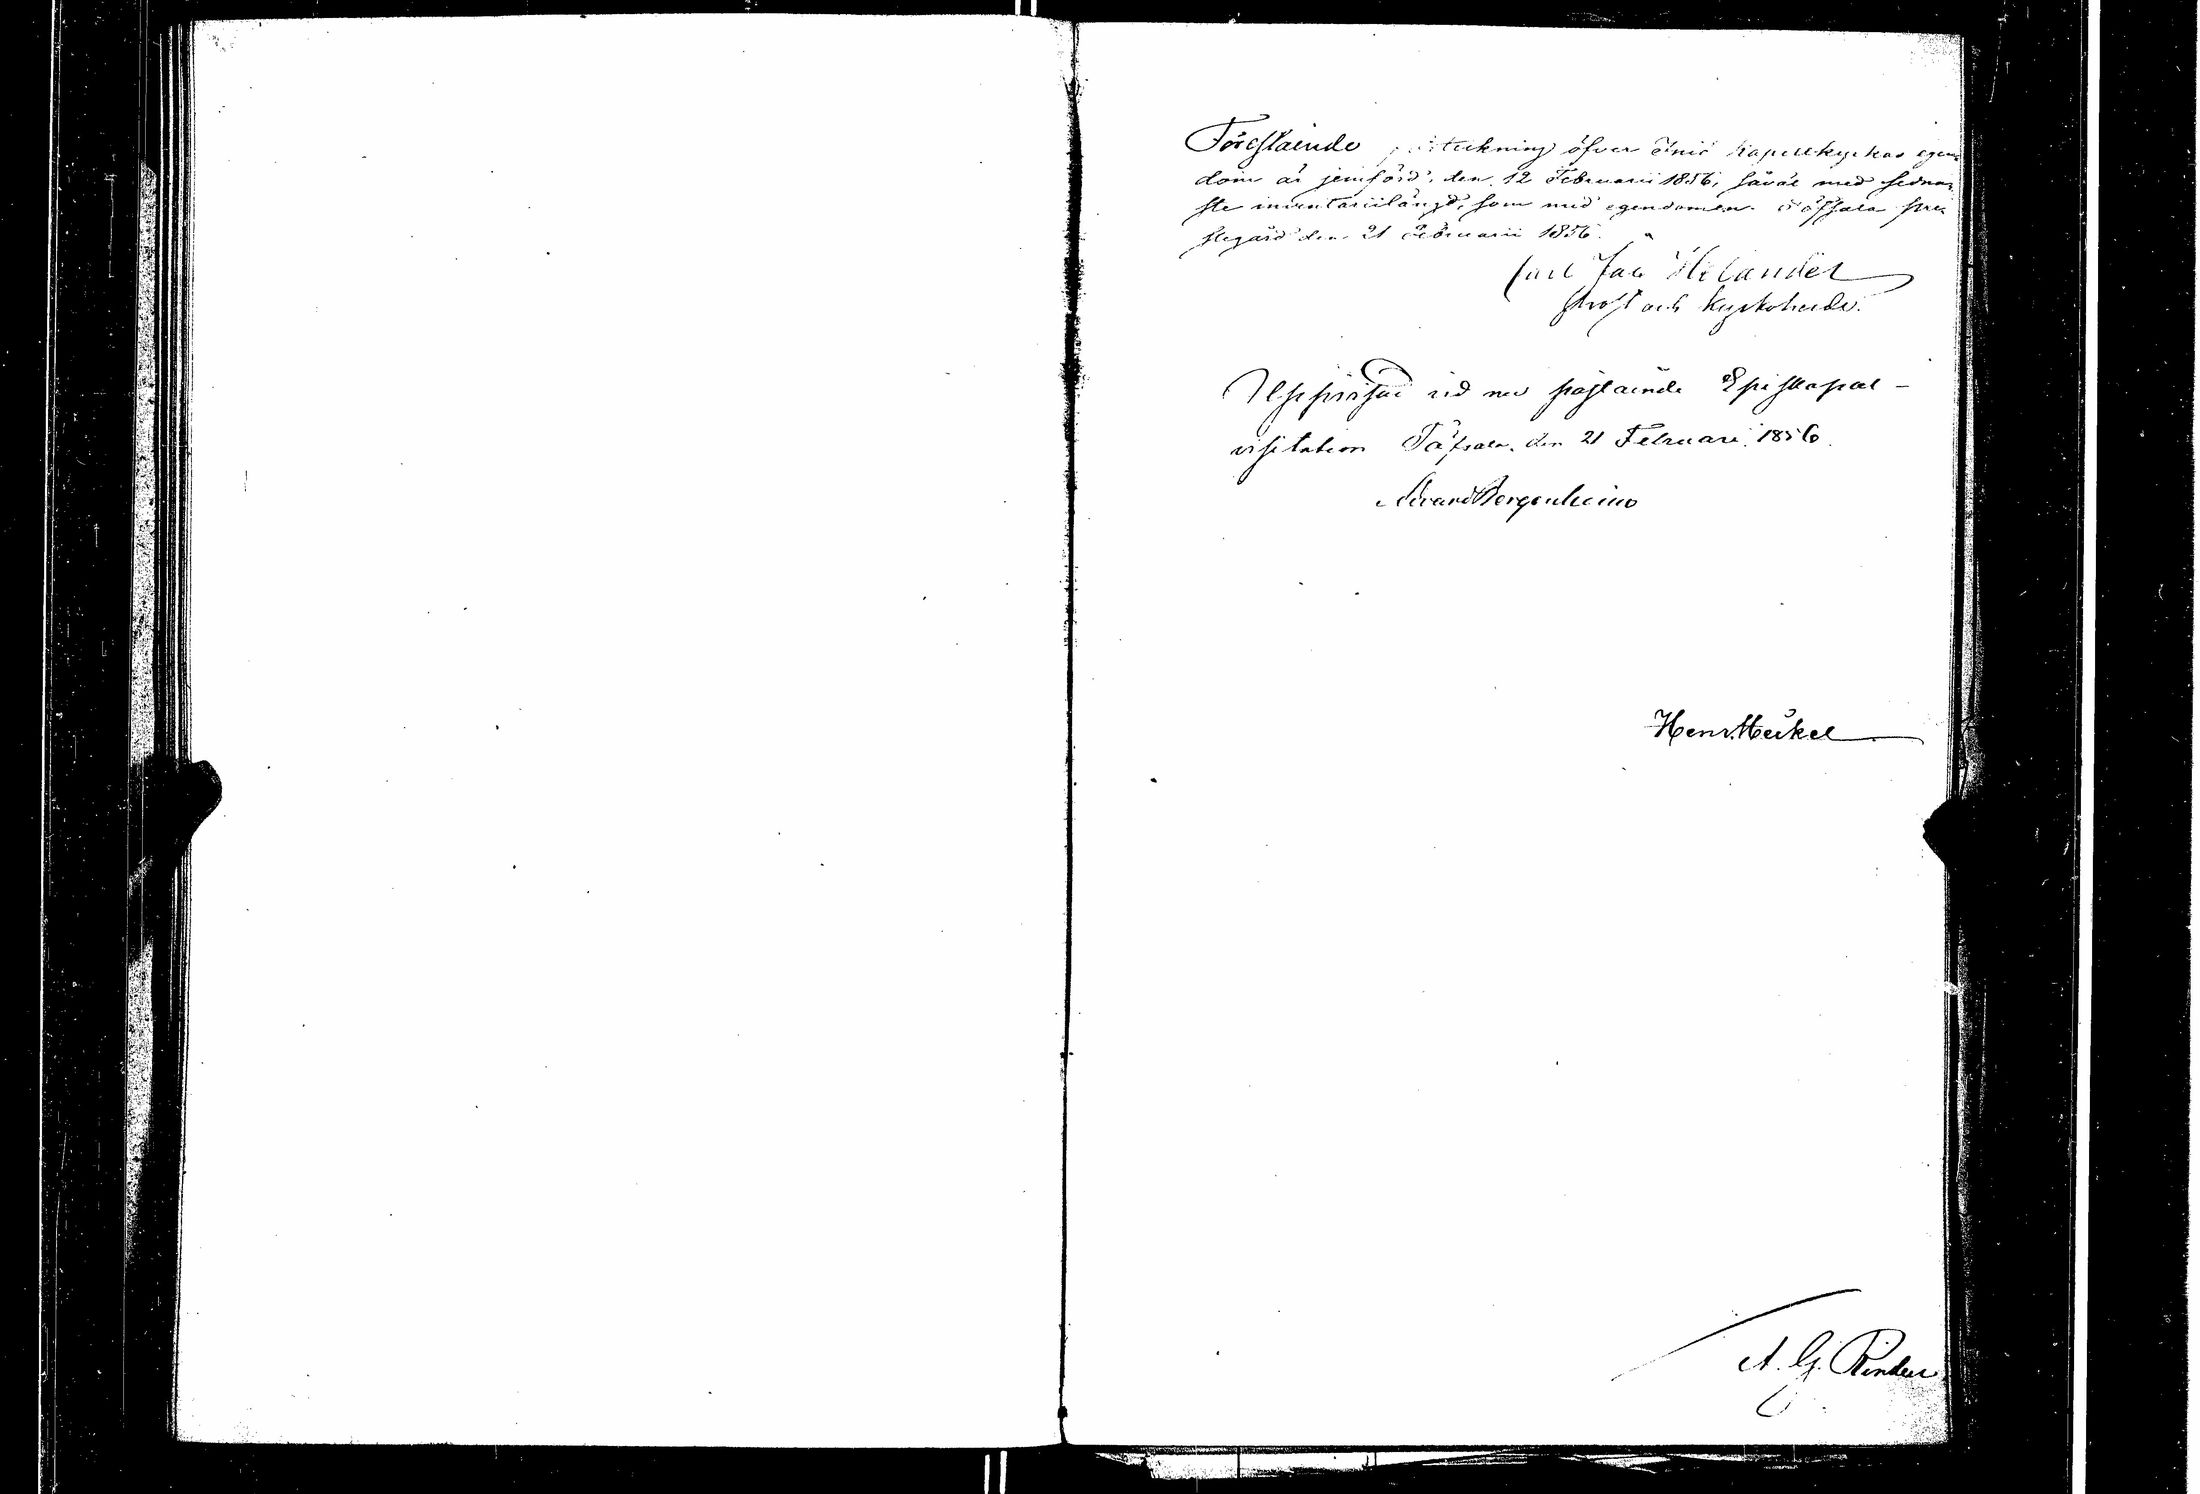 Föreståënde förteckning öfver Iniö Kapellkyrkas egen=
dom är jemförd, den 12 Februarii 1856, såväl med sedna=
ste inventariilängd, som med egendomen. Töfsala pre=
stegård den 21 Februarii 1856.
Carl Jac Helander
Prost och Kyrkoherde.
Uppvisad vid nu påstående Episkopal-
visitation Töfsala den 21 Februari 1856.
Edvard Bergenheim
Henr. Heikel
A. G.